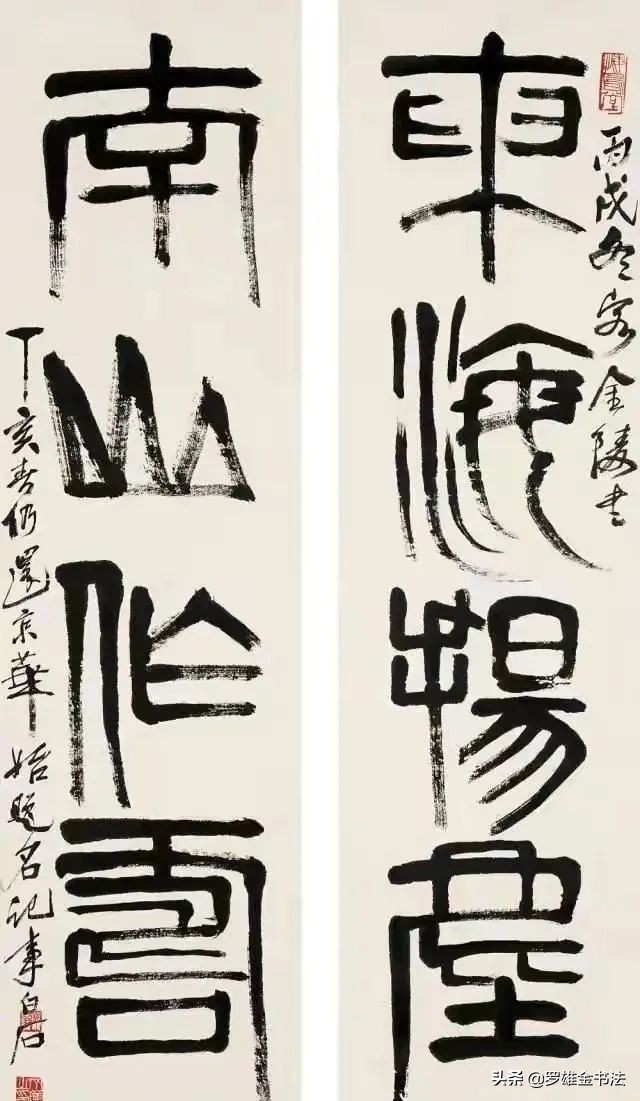 丙戌冬客金陵書
東海揚塵
南山作壽
丁亥春仍還京華始題名記事白石
头条 @罗雄金书法